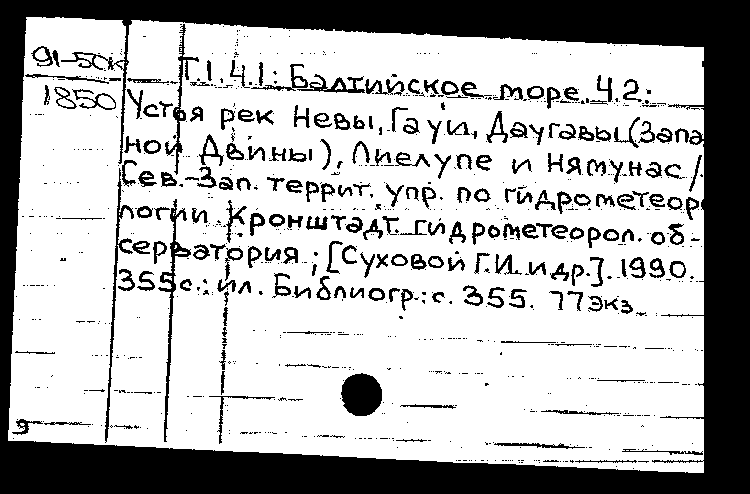 91-50к Т.1.4.1: Балтийское море. Ч.2:
1850 Устья рек Невы, Гауи, Даугавы (Запа
ной Двины), Лиелупе и Нямунас /
Сев.-Зап. террит. упр. по гидрометеор
логии. Кронштадт. гидрометеорол. об-
серватория; [Суховой Г.И. и др.]. 1990.
355с.: ил. Библиогр.: с. 355. 77экз.
9